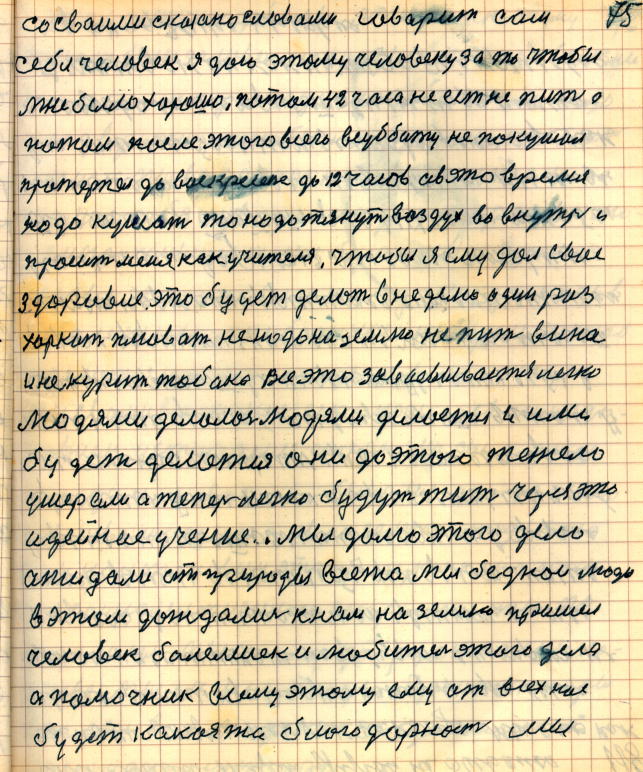 75
со сваими сказано словами говарит сам
себя человек я даю этому человеку за то чтобы
мне было хорошо, потом 42 часа не ест не пит
потом после этого всего в субботу не покушал
протерпел до воскресене до 12 часов а в это время
надо кушат то надо тянут воздух во внутр и
просит меня, как учителя, чтобы я ему дал свае
здоровие, это будет делат в недели один раз
харкат плеват не надо на землю не пит вина
и не курит табака все это завоевывается легко
людями делалос людями делается и ими
будет делатся они до этого тежело
умерали а тепер легко будут жит через это
идейное учение.. Мы долго этого дела
ажидали от природы все жа мы бедное люди
в этом дождалис к нам на землю пришел
человек балелшек и любител этого дела
а помочник всему этому ему от всех нас
будет какаята благодарност мы